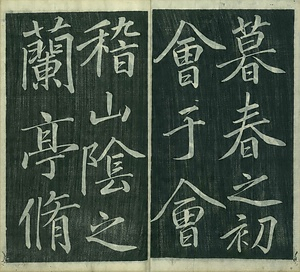 暮春之初
會于會
稽山陰之
蘭亭脩